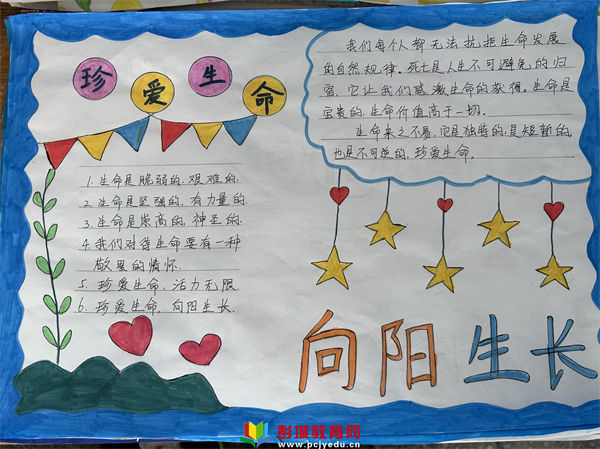 珍爱生命
1. 生命是脆弱的，艰难的.
2. 生命是坚强的，有力量的.
3. 生命是崇高的，神圣的.
4. 我们对待生命要有一种
敬畏的情怀.
5. 珍爱生命，活力无限.
6. 珍爱生命，向阳生长.
我们每个人都无法抗拒生命发展
的自然规律。死亡是人生不可避免的归
宿，它让我们感激生命的获得。生命是
宝贵的，生命价值高于一切.
生命来之不易，它是独特的，是短暂的，
也是不可逆的，珍爱生命.
向阳生长
彭城教育网
www.pcjyedu.cn